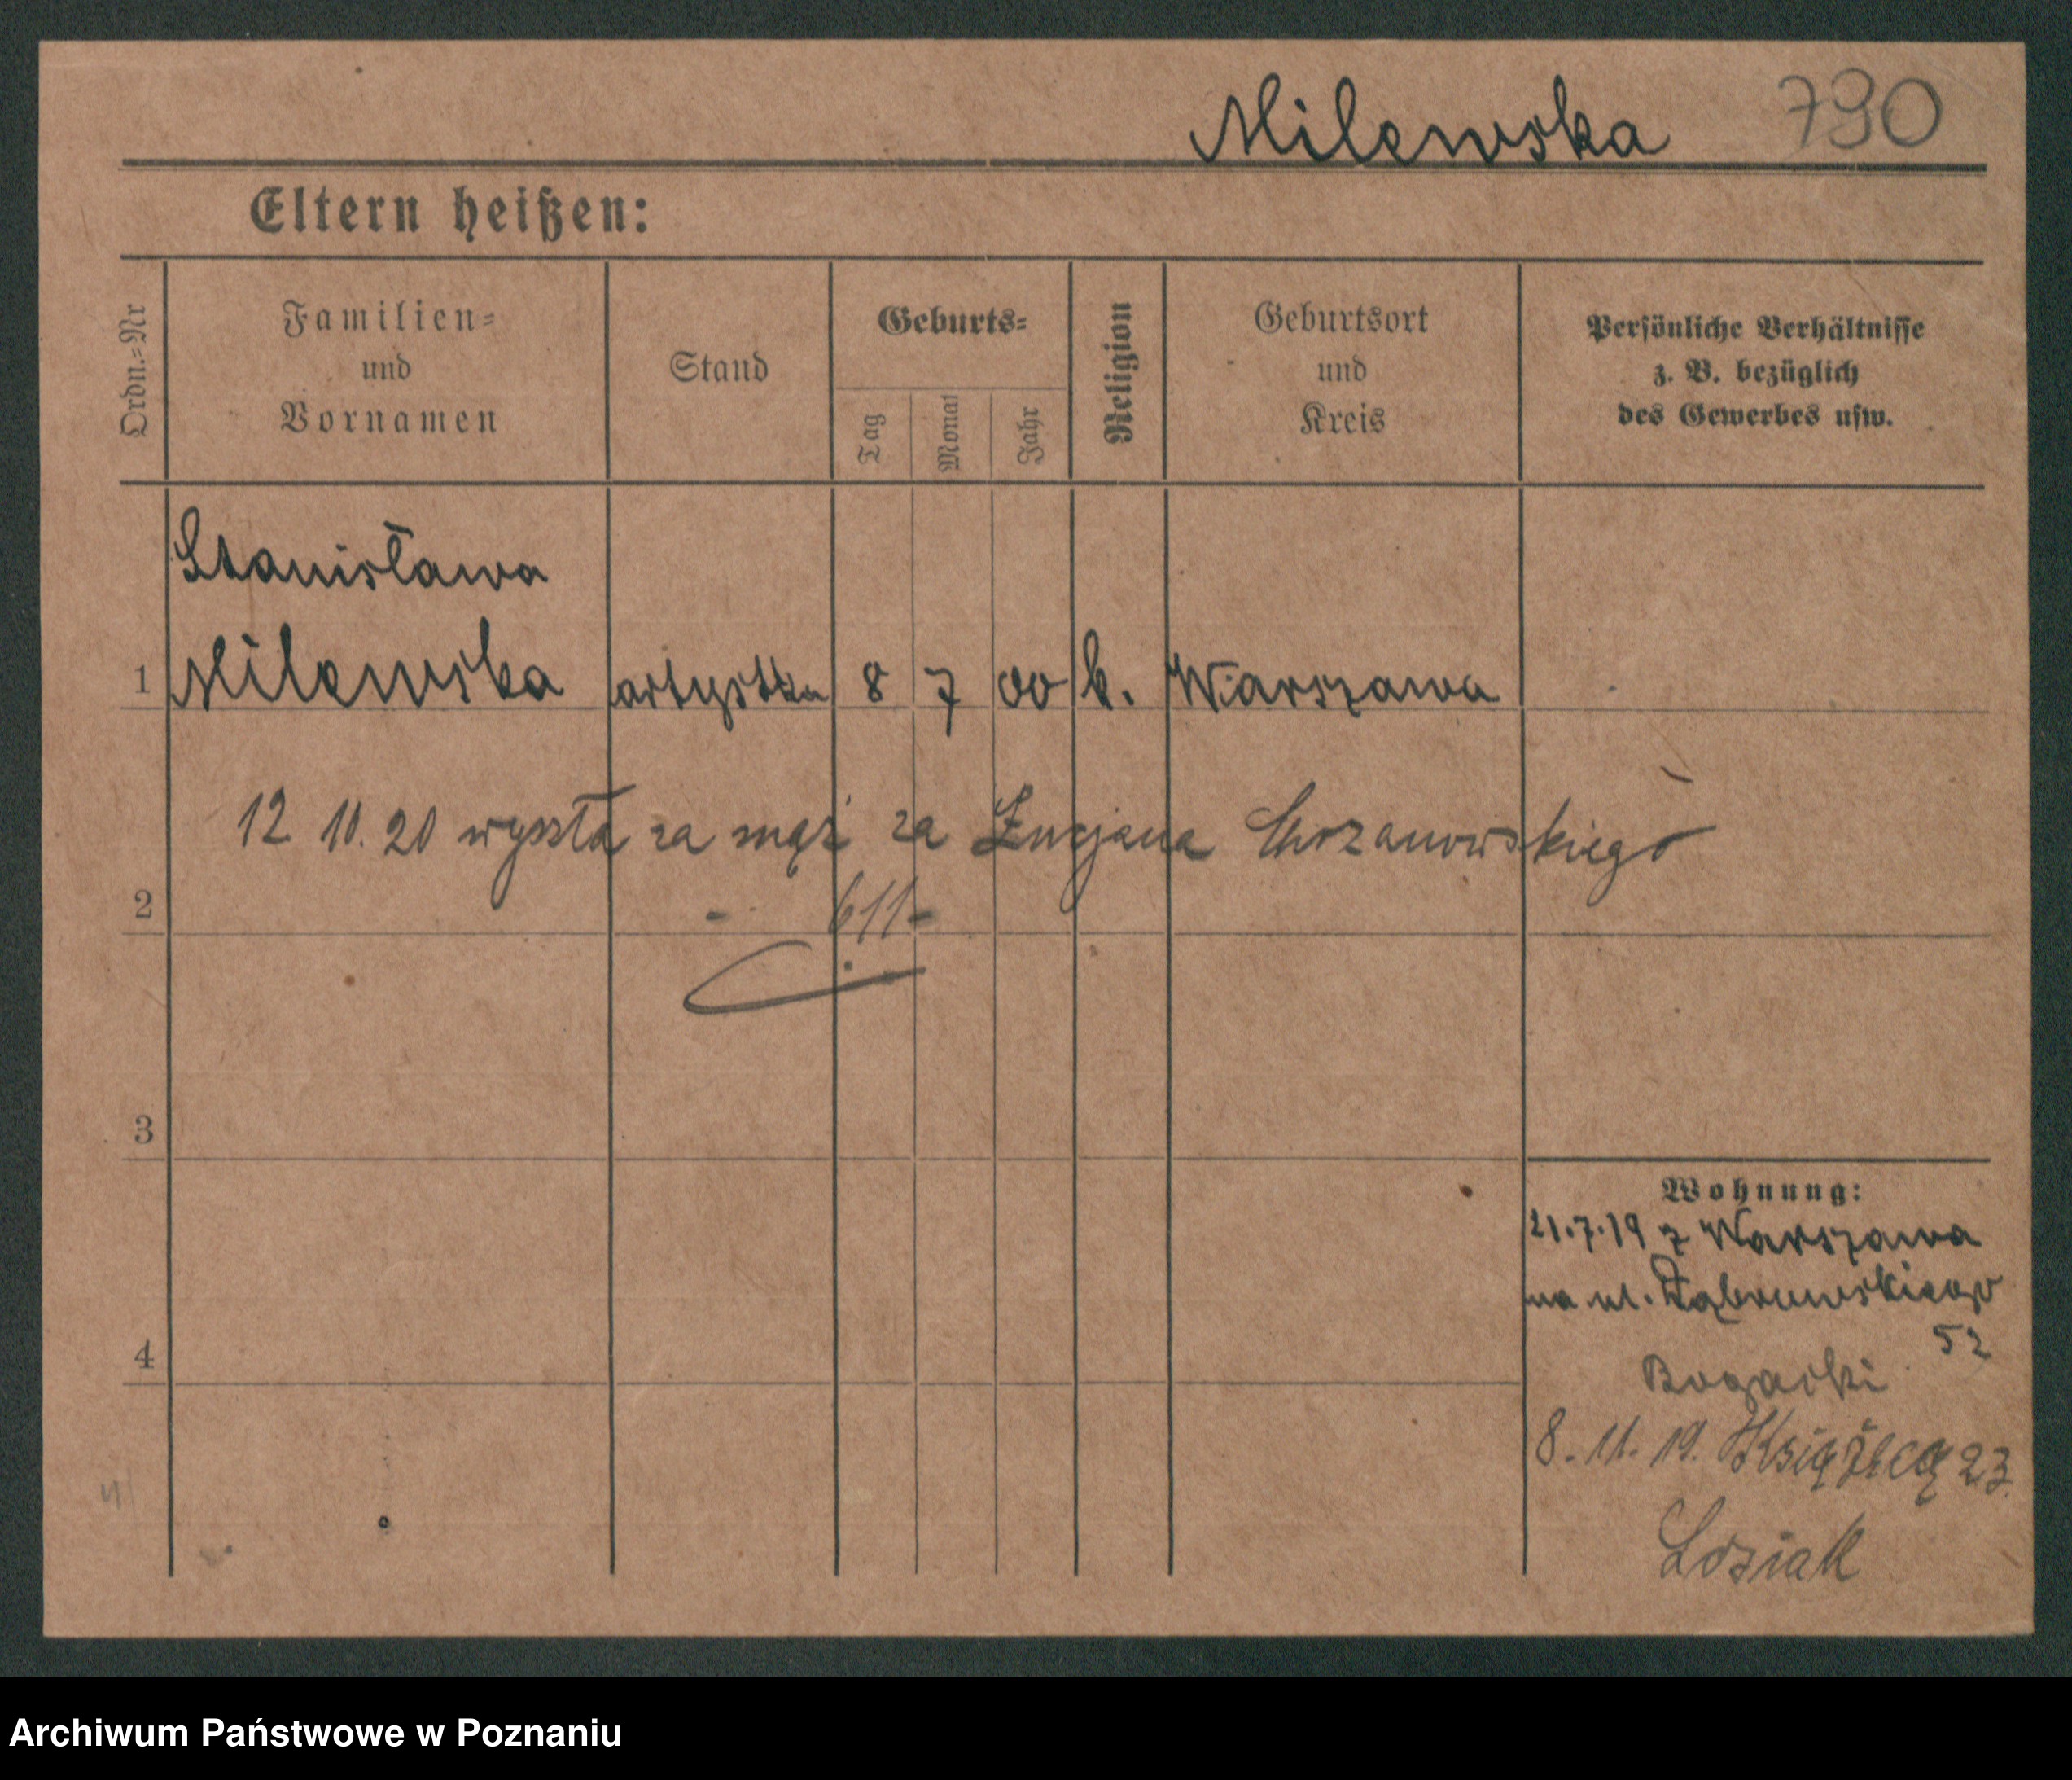 Milewska 790
Eltern heißen:
Ordn.=Nr
Familien=
und
Vornamen
Stand
Geburts=
Tag
Monat
Jahr
Religion
Geburtsort
und
Kreis
Persönliche Verhältnisse
z. B. bezüglich
des Gewerbes usw.
Stanisława
1 Milewska artystka 8 7 00 k. Warszawa
12 10. 20 wyszła za mąż za Łucjana Chrzanowskiego
2
- 611-
3
Wohnung:
21.7.19 z Warszawa
na ul. Dąbrowskiego
52
4
Bogacki
8. 11. 19. Książęca 23.
Losiak
Archiwum Państwowe w Poznaniu